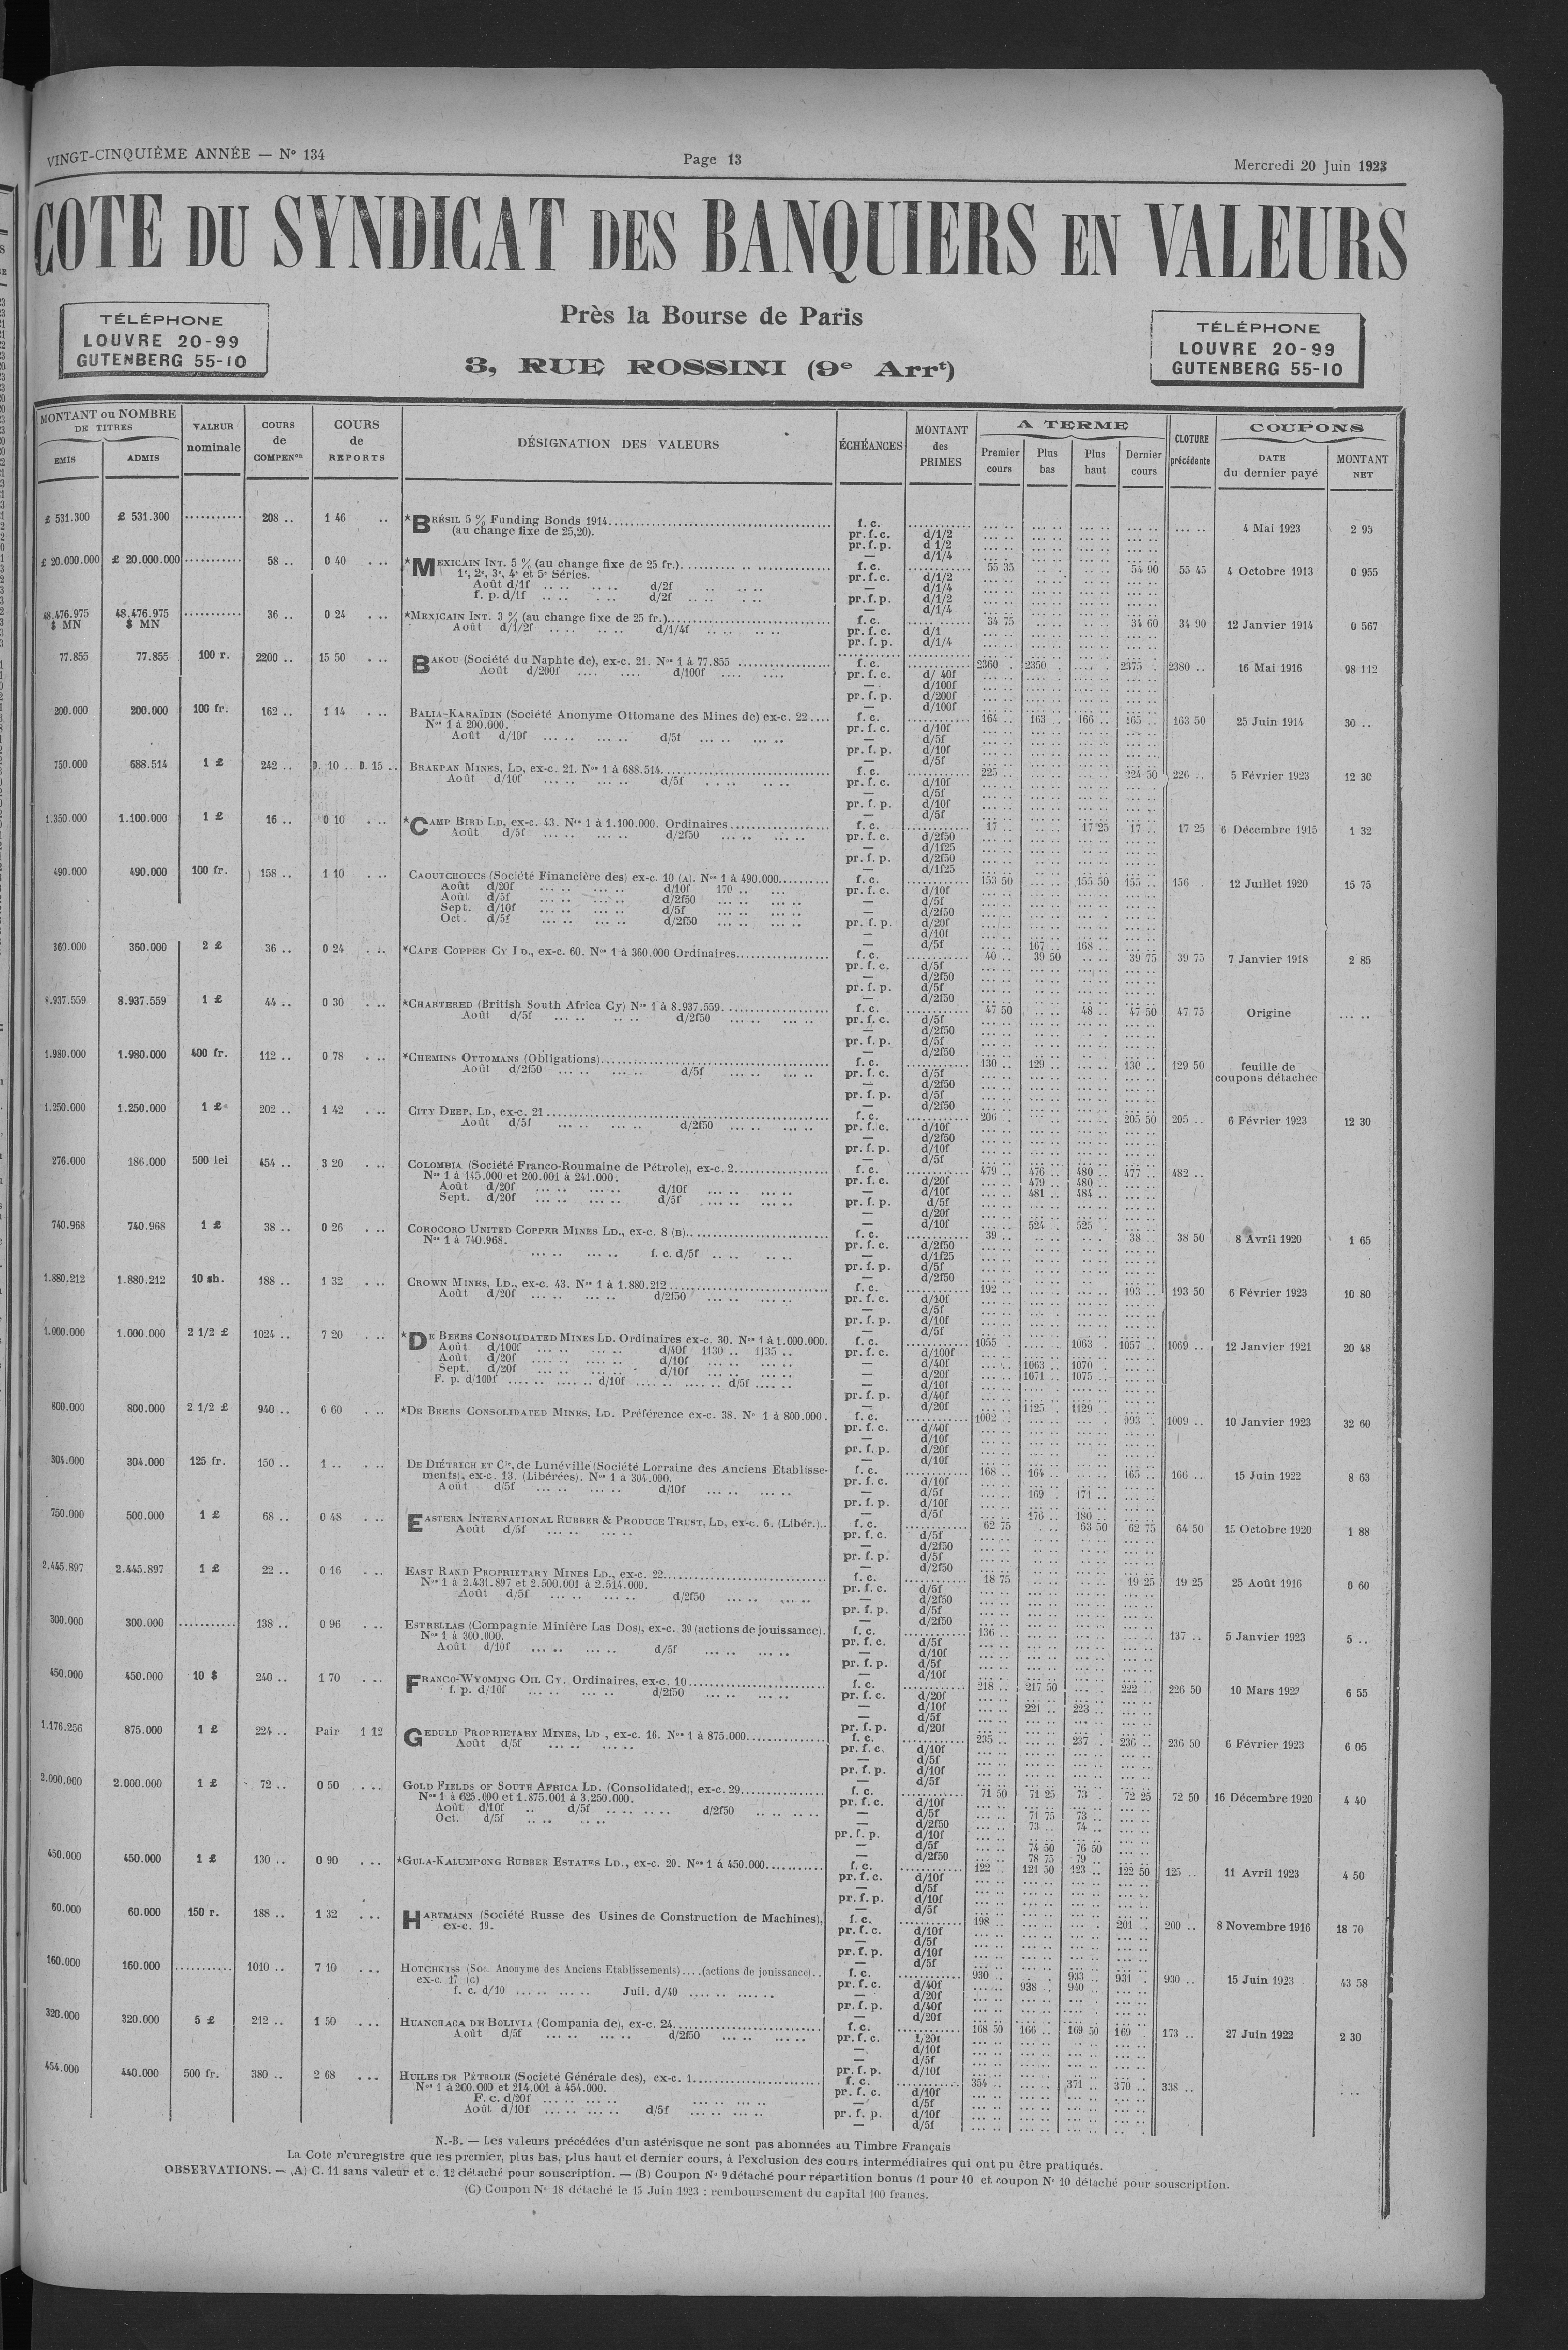 VINGT-CINQUIÈME ANNÉE — N° 134
Page 13
Mercredi 20 Juin 1923
COTE DU SYNDICAT DES BANQUIERS EN VALEURS
TÉLÉPHONE
LOUVRE 20-99
GUTENBERG 55-10
Près la Bourse de Paris
3, RUE ROSSINI (9e Arrt)
TÉLÉPHONE
LOUVRE 20-99
GUTENBERG 55-10
MONTANT ou NOMBRE DE TITRES
EMIS ADMIS
VALEUR nominale
COURS de COMPENon
COURS de REPORTS
DÉSIGNATION DES VALEURS
ÉCHÉANCES
MONTANT des PRIMES
A TERME
Premier cours Plus bas Plus haut Dernier cours
CLOTURE précédente
COUPONS
DATE du dernier payé MONTANT NET
£ 531.300 £ 531.300 .......... 208 .. 1 46 .. *BRÉSIL 5 % Funding Bonds 1914 f. c. 4 Mai 1923 2 95
(au change fixe de 25,20). pr. f. c. d/1/2
pr. f. p. d 1/2
— d/1/4
£ 20.000.000 £ 20.000.000 .......... 58 .. 0 40 ... *MEXICAIN INT. 5 % (au change fixe de 25 fr.) f. c. 55 35 54 90 55 45 4 Octobre 1913 0 955
1e, 2e, 3e, 4e et 5e Séries. pr. f. c. d/1/2
Août d/1f d/2f — d/1/4
f. p. d/1f d/2f pr. f. p. d/1/2
— d/1/4
48.476.975 $ MN 48.476.975 $ MN .......... 36 .. 0 24 ... *MEXICAIN INT. 3 % (au change fixe de 25 fr.) f. c. 34 75 34 60 34 90 12 Janvier 1914 0 567
Août d/1/2f d/1/4f pr. f. c. d/1
pr. f. p. d/1/4
77.855 77.855 100 r. 2200 .. 15 50 ... BAKOU (Société du Naphte de), ex-c. 21. Nos 1 à 77.855 f. c. 2360 . 2350 . 2375 . 2380 .. 16 Mai 1916 98 112
Août d/200f d/100f pr. f. c. d/ 40f
— d/100f
pr. f. p. d/200f
— d/100f
200.000 200.000 100 fr. 162 .. 1 14 ... BALIA-KARAÏDIN (Société Anonyme Ottomane des Mines de) ex-c. 22 f. c. 164 .. 163 .. 166 .. 165 .. 163 50 25 Juin 1914 30 ..
Nos 1 à 200.000. pr. f. c. d/10f
Août d/10f d/5f — d/5f
pr. f. p. d/10f
— d/5f
750.000 688.514 1 £ 242 .. D. 10 .. D. 15 .. BRAKPAN MINES, LD, ex-c. 21. Nos 1 à 688.514 f. c. 225 .. 224 50 226 .. 5 Février 1923 12 30
Août d/10f d/5f pr. f. c. d/10f
— d/5f
pr. f. p. d/10f
— d/5f
1.350.000 1.100.000 1 £ 16 .. 0 10 ... *CAMP BIRD LD, ex-c. 43. Nos 1 à 1.100.000. Ordinaires f. c. 17 .. 17 25 17 .. 17 25 6 Décembre 1915 1 32
Août d/5f d/2f50 pr. f. c. d/2f50
— d/1f25
pr. f. p. d/2f50
— d/1f25
490.000 490.000 100 fr. 158 .. 1 10 ... CAOUTCHOUCS (Société Financière des) ex-c. 10 (A). Nos 1 à 490.000 f. c. 153 50 155 50 155 .. 156 12 Juillet 1920 15 75
Août d/20f d/10f 170 .. pr. f. c. d/10f
Août d/5f d/2f50 — d/5f
Sept. d/10f d/5f — d/2f50
Oct. d/5f d/2f50 pr. f. p. d/20f
— d/10f
— d/5f 167 .. 168 ..
360.000 360.000 2 £ 36 .. 0 24 ... *CAPE COPPER CY LD., ex-c. 60. Nos 1 à 360.000 Ordinaires f. c. 40 .. 39 50 39 75 39 75 7 Janvier 1918 2 85
pr. f. c. d/5f
— d/2f50
pr. f. p. d/5f
— d/2f50
8.937.559 8.937.559 1 £ 44 .. 0 30 ... *CHARTERED (British South Africa Cy) Nos 1 à 8.937.559 f. c. 47 50 48 .. 47 50 47 75 Origine
Août d/5f d/2f50 pr. f. c. d/5f
— d/2f50
pr. f. p. d/5f
— d/2f50
1.980.000 1.980.000 400 fr. 112 .. 0 78 ... *CHEMINS OTTOMANS (Obligations) f. c. 130 .. 129 .. 130 .. 129 50 feuille de coupons détachée
Août d/2f50 d/5f pr. f. c. d/5f
— d/2f50
pr. f. p. d/5f
— d/2f50
1.250.000 1.250.000 1 £ 202 .. 1 42 ... CITY DEEP, LD, ex-c. 21 f. c. 206 . 205 50 205 .. 6 Février 1923 12 30
Août d/5f d/2f50 pr. f. c. d/10f
— d/2f50
pr. f. p. d/10f
— d/5f
276.000 186.000 500 lei 454 .. 3 20 ... COLOMBIA (Société Franco-Roumaine de Pétrole), ex-c. 2 f. c. 479 .. 476 .. 480 .. 477 .. 482 ..
Nos 1 à 145.000 et 200.001 à 241.000. pr. f. c. d/20f 479 .. 480 ..
Août d/20f d/10f — d/10f 481 .. 484 ..
Sept. d/20f d/5f pr. f. p. d/5f
— d/20f
— d/10f 524 . 525 .
740.968 740.968 1 £ 38 .. 0 26 ... COROCORO UNITED COPPER MINES LD., ex-c. 8 (B) f. c. 39 .. 38 .. 38 50 8 Avril 1920 1 65
Nos 1 à 740.968. pr. f. c. d/2f50
f. c. d/5f — d/1f25
pr. f. p. d/5f
— d/2f50
1.880.212 1.880.212 10 sh. 188 .. 1 32 ... CROWN MINES, LD., ex-c. 43. Nos 1 à 1.880.212 f. c. 192 .. 193 .. 193 50 6 Février 1923 10 80
Août d/20f d/2f50 pr. f. c. d/10f
— d/5f
pr. f. p. d/10f
— d/5f
1.000.000 1.000.000 2 1/2 £ 1024 .. 7 20 ... *DE BEERS CONSOLIDATED MINES LD. Ordinaires ex-c. 30. Nos 1 à 1.000.000. f. c. 1055 . 1063 . 1057 .. 1069 .. 12 Janvier 1921 20 48
Août d/100f d/40f 1130 .. 1135 .. pr. f. c. d/100f
Août d/20f d/10f — d/40f 1063 .. 1070 ..
Sept. d/20f d/10f — d/20f 1071 .. 1075 ..
F. p. d/100f d/10f d/5f — d/10f
pr. f. p. d/40f
— d/20f 1125 .. 1129 ..
800.000 800.000 2 1/2 £ 940 .. 6 60 ... *DE BEERS CONSOLIDATED MINES, LD. Préférence ex-c. 38. N° 1 à 800.000. f. c. 1002 .. 993 . 1009 .. 10 Janvier 1923 32 60
pr. f. c. d/40f
— d/10f
pr. f. p. d/20f
— d/10f
304.000 304.000 125 fr. 150 .. 1 .. ... DE DIÉTRICH ET Cie, de Lunéville (Société Lorraine des Anciens Etablisse- f. c. 168 .. 164 .. 165 .. 166 .. 15 Juin 1922 8 63
ments), ex-c. 13. (Libérées). Nos 1 à 304.000. pr. f. c. d/10f
Août d/5f d/10f — d/5f 169 .. 171 ..
pr. f. p. d/10f
— d/5f 176 .. 180 ..
750.000 500.000 1 £ 68 .. 0 48 ... EASTERN INTERNATIONAL RUBBER & PRODUCE TRUST, LD, ex-c. 6. (Libér.) f. c. 62 75 63 50 62 75 64 50 15 Octobre 1920 1 88
Août d/5f pr. f. c. d/5f
— d/2f50
pr. f. p. d/5f
— d/2f50
2.445.897 2.445.897 1 £ 22 .. 0 16 ... EAST RAND PROPRIETARY MINES LD., ex-c. 22 f. c. 18 75 19 25 19 25 25 Août 1916 0 60
Nos 1 à 2.431.897 et 2.500.001 à 2.514.000. pr. f. c. d/5f
Août d/5f d/2f50 — d/2f50
pr. f. p. d/5f
— d/2f50
300.000 300.000 .......... 138 .. 0 96 ... ESTRELLAS (Compagnie Minière Las Dos), ex-c. 39 (actions de jouissance). f. c. 136 .. 137 .. 5 Janvier 1923 5 ..
Nos 1 à 300.000. pr. f. c. d/5f
Août d/10f d/5f — d/10f
pr. f. p. d/5f
— d/10f
450.000 450.000 10 $ 240 .. 1 70 ... FRANCO-WYOMING OIL CY. Ordinaires, ex-c. 10 f. c. 218 .. 217 50 222 .. 226 50 10 Mars 1922 6 55
f. p. d/10f d/2f50 pr. f. c. d/20f
— d/10f 221 .. 223 ..
— d/5f
pr. f. p. d/20f
1.176.256 875.000 1 £ 224 .. Pair 1 12 GEDULD PROPRIETARY MINES, LD, ex-c. 16. Nos 1 à 875.000 f. c. 235 .. 237 .. 236 .. 236 50 6 Février 1923 6 05
Août d/5f pr. f. c. d/10f
— d/5f
pr. f. p. d/10f
— d/5f
2.000.000 2.000.000 1 £ 72 .. 0 50 ... GOLD FIELDS OF SOUTH AFRICA LD. (Consolidated), ex-c. 29 f. c. 71 50 71 25 73 . 72 25 72 50 16 Décembre 1920 4 40
Nos 1 à 625.000 et 1.875.001 à 3.250.000. pr. f. c. d/10f
Août d/10f d/5f d/2f50 — d/5f 71 75 73 ..
Oct. d/5f — d/2f50 73 .. 74 ..
pr. f. p. d/10f
— d/5f 74 50 76 50
— d/2f50 78 75 79 ..
450.000 450.000 1 £ 130 .. 0 90 ... *GULA-KALUMPONG RUBBER ESTATES LD., ex-c. 20. Nos 1 à 450.000 f. c. 122 .. 121 50 123 .. 122 50 125 .. 11 Avril 1923 4 50
pr. f. c. d/10f
— d/5f
pr. f. p. d/10f
— d/5f
60.000 60.000 150 r. 188 .. 1 32 ... HARTMANN (Société Russe des Usines de Construction de Machines), f. c. 198 .. 201 . 200 .. 8 Novembre 1916 18 70
ex-c. 19. pr. f. c. d/10f
— d/5f
pr. f. p. d/10f
— d/5f
160.000 160.000 .......... 1010 .. 7 10 ... HOTCHKISS (Soc. Anonyme des Anciens Etablissements)....(actions de jouissance) f. c. 930 . 933 .. 931 . 930 .. 15 Juin 1923 43 58
ex-c. 17 (C) pr. f. c. d/40f 938 . 940 ..
f. c. d/10 Juil. d/40 — d/20f
pr. f. p. d/40f
— d/20f
320.000 320.000 5 £ 212 .. 1 50 ... HUANCHACA DE BOLIVIA (Compania de), ex-c. 24 f. c. 168 50 166 .. 169 50 169 . 173 .. 27 Juin 1922 2 30
Août d/5f d/2f50 pr. f. c. 1/20f
— d/10f
— d/5f
pr. f. p. d/10f
454.000 440.000 500 fr. 380 .. 2 68 ... HUILES DE PÉTROLE (Société Générale des), ex-c. 1 f. c. 354 .. 371 .. 370 .. 338 ..
Nos 1 à 200.000 et 214.001 à 454.000. pr. f. c. d/10f
F. c. d/20f — d/5f
Août d/10f d/5f pr. f. p. d/10f
— d/5f
N.-B. — Les valeurs précédées d'un astérisque ne sont pas abonnées au Timbre Français
La Cote n'enregistre que les premier, plus bas, plus haut et dernier cours, à l'exclusion des cours intermédiaires qui ont pu être pratiqués.
OBSERVATIONS. — (A) C. 11 sans valeur et c. 12 détaché pour souscription. — (B) Coupon N° 9 détaché pour répartition bonus (1 pour 10 et coupon N° 10 détaché pour souscription.
(C) Coupon N° 18 détaché le 15 Juin 1923 : remboursement du capital 100 francs.